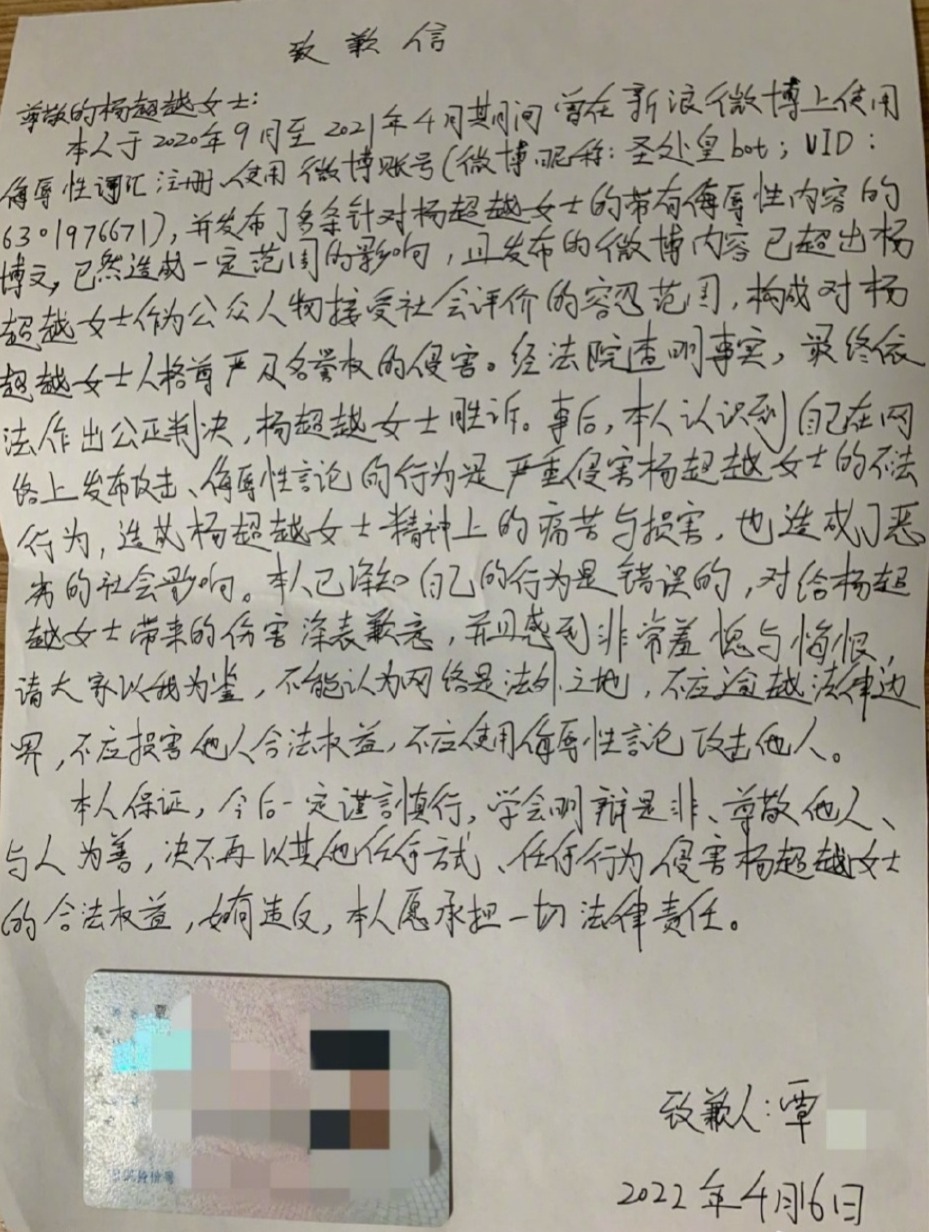 致歉信
尊敬的杨超越女士:
本人于2020年9月至2021年4月期间曾在新浪微博上使用
侮辱性词汇注册、使用微博账号(微博昵称:圣处皇bot;UID:
6301976671),并发布了多条针对杨超越女士的带有侮辱性内容的
博文,已然造成一定范围的影响,且发布的微博内容已超出杨
超越女士作为公众人物接受社会评价的容忍范围,构成对杨
超越女士人格尊严及名誉权的侵害。经法院查明事实,最终依
法作出公正判决,杨超越女士胜诉。事后,本人认识到自己在网
络上发布攻击、侮辱性言论的行为是严重侵害杨超越女士的不法
行为,造成杨超越女士精神上的痛苦与损害,也造成了恶
劣的社会影响。本人已深知自己的行为是错误的,对给杨超
越女士带来的伤害深表歉意,并且感到非常羞愧与悔恨,
请大家以我为鉴,不能认为网络是法外之地,不应逾越法律边
界,不应损害他人合法权益,不应使用侮辱性言论攻击他人。
本人保证,今后一定谨言慎行,学会明辩是非、尊敬他人、
与人为善,决不再以其他任何方式、任何行为侵害杨超越女士
的合法权益,如有违反,本人愿承担一切法律责任。
覃
致歉人:覃
2022年4月16日